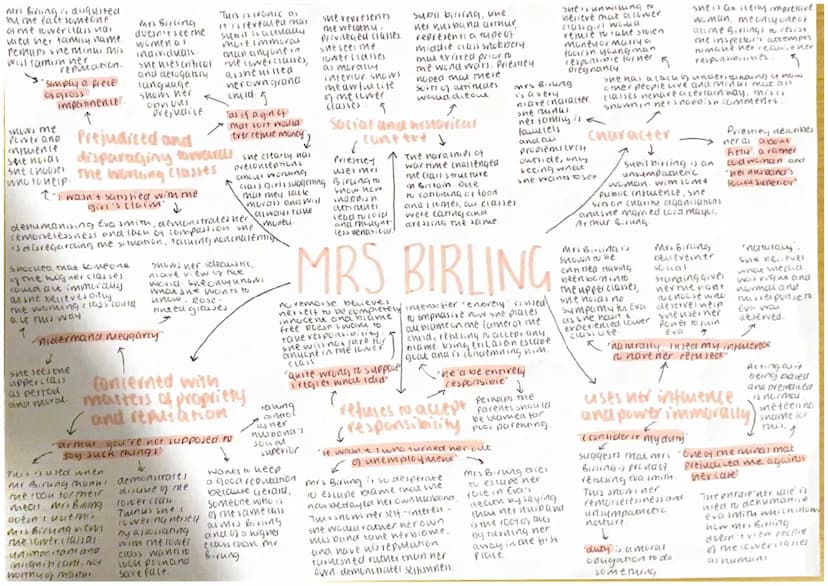 Mrs Birling is disgusted
by the fact someone
of the lower class has
used her family name
perhaps she thinks this
will tarnish her
reputation.
'simply a piece
of gross
impertinence'
shows the
power and
influence
she holds
she chooses
who to help.
Mrs Birling
doesn't see the
women as
individuals
she uses critical
and derogatory
language
shows her
obvious
prejudice
This is ironic as
it is revealed that
Sybil is actually
more immoral
than anyone in
the lower classes,
as she killed
her own grand
child
'as if a girl of
that sort would
ever refuse money'
Prejudiced and
disparaging towards
the working classes
'I wasn't satisfied with the
girl's claim'
she clearly has
preconceptions
about working
class girls suggesting
that they lack
morals and will
always take
money.
dehumanising Eva Smith, demonstrates her
remorselessness and lack of compassion she
is disregarding the situation, talking nonchalantly
she represents
the wealthy,
privileged classes
she sees the
lower classes
as morally
inferior. shows
the awful life
of the lower
classes.
Sybil Birling, like
her husband Arthur,
represents a type of
middle class snobbery
that existed prior to
the world wars. Priestley
hoped that these
sorts of attitudes
would die out
Social and historical
context
Priestley
uses Mrs
Birling to
show how
snobbish
attitudes
lead to cold
and thought-
less behaviour
The realities of
wartime challenged
the class structure
in Britain. due
to rationing of food
and clothes, all classes
were eating and
dressing the same.
She is unwilling to
believe that a lower
class girl would
refuse to take stolen
money or marry a
foolish young man
responsible for her
pregnancy
she is an extremely impressive
woman, the only one of
all the Birlings to resist
the inspector's attempts
to make her realise her
responsibilities.
she has a lack of understanding of how
other people live and thinks that all
classes behave a certain way, this is
shown in her snobbish comments.
Mrs Birling
is a very
naive character
she thinks
her family is
faultless
and all
problems lie
outside, only
seeing what
she wants to see.
Character
Priestley describes
her as 'about
fifty, a rather
cold woman' and
'her husband's
social superior'
Sybil Birling is an
unsympathetic
woman with some
public influence, she
sits on charity organisations
and she married Lord Mayor,
Arthur Birling
MRS BIRLING
shocked that someone
of the higher classes
could act immorally
as she believes only
the working class could
act this way.
shows her idealistic,
naive view of the
world. she only knows
what she wants to
know - rose-
tinted glasses
'Alderman Meggarty'
she sees the
upper class
as perfect
and moral.
Concerned with
matters of propriety
and reputation
'Arthur you're not supposed to
say such things'
taking
control as
her
husband's
social
superior
This is used when
Mr Birling thanks
the cook for their
meal. Mrs Birling
doesn't like this
Mrs Birling views
the lower classes
unimportant and
insignificant, not
worthy of thanks.
demonstrates
dislike of the
lower class.
Thinks she is
lowering herself
by associating
with the lower
class. wants to
look posh and
sartfalt.
wants to keep
a good reputation
because Gerald,
someone who is
of the same class
as Mrs Birling
and of a higher
class than Mr
Birling
no remorse believes
herself to be completely
innocent and blame
free doesn't want to
take responsibility
she will not care for
anyone in the lower
class
'quite wrong to suppose
I regret what I did'
intensifier 'entirely' is used
to emphasise how she places
all blame on the father of the
child, refusing to accept any
blame. using Eric as an escape
goat and is condemning him.
'he'd be entirely
responsible'
perhaps the
parents should
be blamed for
poor parenting
refuses to accept
responsibility
'it wasn't I who turned her out
of unemployment'
Mrs Birling is so desperate
to escape blame that she
has betrayed her own husband.
This shows her self-interest-
she would rather her own
husband take the blame,
and have his reputation
tarnished rather than her
own. demonstrates selfishness.
Mrs Birling tries
to escape her
role in Eva's
demise by saying
that her husband
is the root cause
by turning her
away in the first
place.
Mrs Birling is
shown to be
entitled having
been born into
the upper class,
she holds no
sympathy to Eva
as she hasn't
experienced lower
class life
Mrs Birling
believes her
social
standing gives
her the right
to choose who
deserves help
she uses her
power to ruin
Eva
'naturally'.
she believes
what she did
was right and
normal and
this response to
Eva was
deserved.
'naturally I used my influence
to have her refused'
Acting out
being biased
and prejudiced
is normal
she feels no
shame for
this.
uses her influence
and power immorally
'I consider it my duty'
'one of the things that
prejudiced me against
her case'
suggests that Mrs
Birling is proud of
refusing Eva Smith.
This shows her
remorselessness and
unsympathetic
nature.
'duty' is a moral
obligation to do
something
The phrase 'her case' is
used to dehumanise
Eva Smith which shows
how Mrs Birling
doesn't view people
of the lower classes
as humans